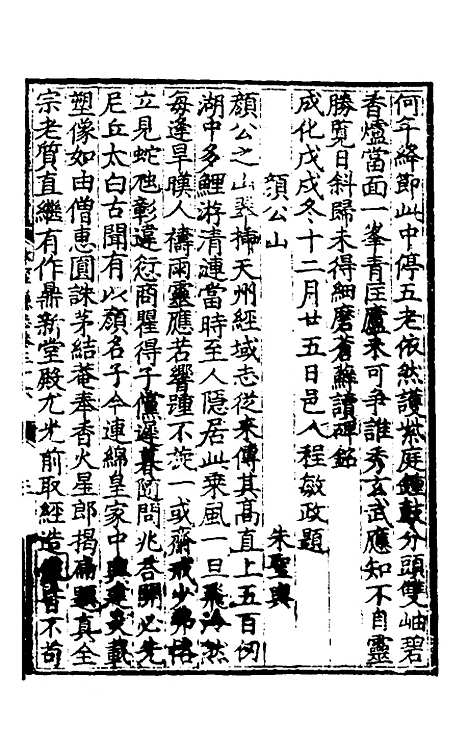 何年絳節此中停五老依然護紫庭鐘鼓分頭雙岫碧
香爐當面一峯青匡廬未可爭誰秀玄武應知不自靈
勝覽日斜歸未得細磨蒼蘚讀碑銘
成化戊戌冬十二月廿五日邑人程敏政題
顏公山　朱聖與
顏公之山翠插天州經域志從來傳其高直上五百仞
湖中多鯉游清漣當時至人隱居此乘風一旦飛泠然
每逢旱暵人禱雨靈應若響踵不旋一或齋戒少弗恪
立見蛇虺彰違愆商瞿得子儻遲暮隨問兆吞關必先
尼丘太白古聞有以顏名子今連綿皇家中興運
塑像如由僧惠圓誅茅結菴奉香火星郎揭扁題真全
宗老質直繼有作鼎新堂殿尤光前取經造像皆不苟